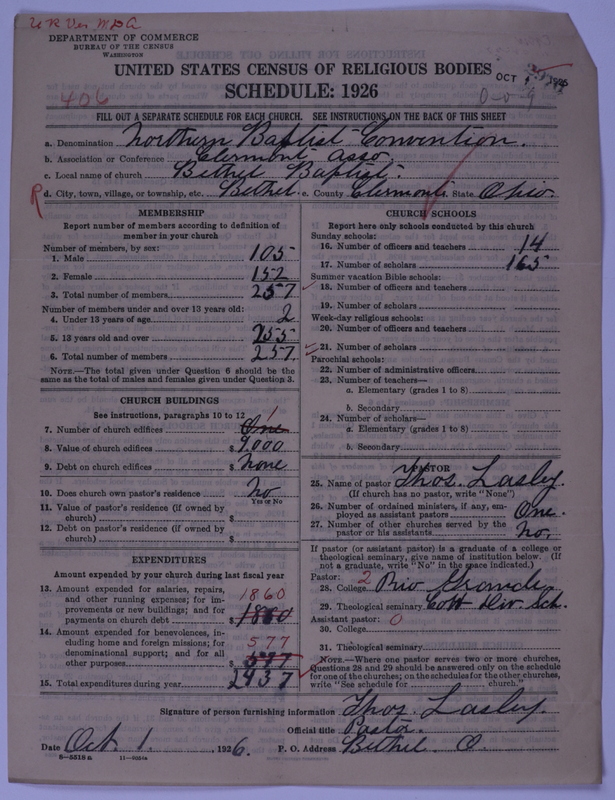 U R Ver M D A
DEPARTMENT OF COMMERCE
BUREAU OF THE CENSUS
WASHINGTON
UNITED STATES CENSUS OF RELIGIOUS BODIES
SCHEDULE: 1926
OCT
406
0-0-9
FILL OUT A SEPARATE SCHEDULE FOR EACH CHURCH. SEE INSTRUCTIONS ON THE BACK OF THIS SHEET
a. Denomination Northern Baptist Convention.
b. Association or Conference Clermont Asso.
c. Local name of church Bethel Baptist.
R d. City, town, village, or township, etc. Bethel. e. County Clermont. State Ohio.
MEMBERSHIP
Report number of members according to definition of
member in your church
Number of members, by sex:
1. Male 105
2. Female 152
3. Total number of members 257
Number of members under and over 13 years old:
4. Under 13 years of age 2
5. 13 years old and over 255
6. Total number of members 257
NOTE.—The total given under Question 6 should be the
same as the total of males and females given under Question 3.
CHURCH BUILDINGS
See instructions, paragraphs 10 to 12
7. Number of church edifices One 1
8. Value of church edifices $ 9,000
9. Debt on church edifices $ None
10. Does church own pastor's residence No
Yes or No
11. Value of pastor's residence (if owned by
church) $
12. Debt on pastor's residence (if owned by
church) $
EXPENDITURES
Amount expended by your church during last fiscal year
13. Amount expended for salaries, repairs,
and other running expenses; for im-
provements or new buildings; and for
payments on church debt $ 1860
1860
14. Amount expended for benevolences, in-
cluding home and foreign missions; for
denominational support; and for all
other purposes $ 577
577
15. Total expenditures during year $ 2437
CHURCH SCHOOLS
Report here only schools conducted by this church
Sunday schools:
16. Number of officers and teachers 14
17. Number of scholars 165
Summer vacation Bible schools:
18. Number of officers and teachers
19. Number of scholars
Week-day religious schools:
20. Number of officers and teachers
21. Number of scholars
Parochial schools:
22. Number of administrative officers
23. Number of teachers—
a. Elementary (grades 1 to 8)
b. Secondary
24. Number of scholars—
a. Elementary (grades 1 to 8)
b. Secondary
PASTOR
25. Name of pastor Thos. Lasley.
(If church has no pastor, write "None")
26. Number of ordained ministers, if any, em-
ployed as assistant pastors One.
27. Number of other churches served by the
pastor or his assistants No.
If pastor (or assistant pastor) is a graduate of a college or
theological seminary, give name of institution below. (If
not a graduate, write "No" in the space indicated.)
Pastor: 2
28. College Rio Grande
29. Theological seminary Div. Sch.
Assistant pastor: 0
30. College
31. Theological seminary
NOTE.—Where one pastor serves two or more churches,
Questions 28 and 29 should be answered only on the schedule
for one of the churches; on the schedules for the other churches,
write "See schedule for church."
Signature of person furnishing information Thos. Lasley.
Official title Pastor.
Date Oct. 1, 1926. P. O. Address Bethel O.
8—5518 a 11—9034a